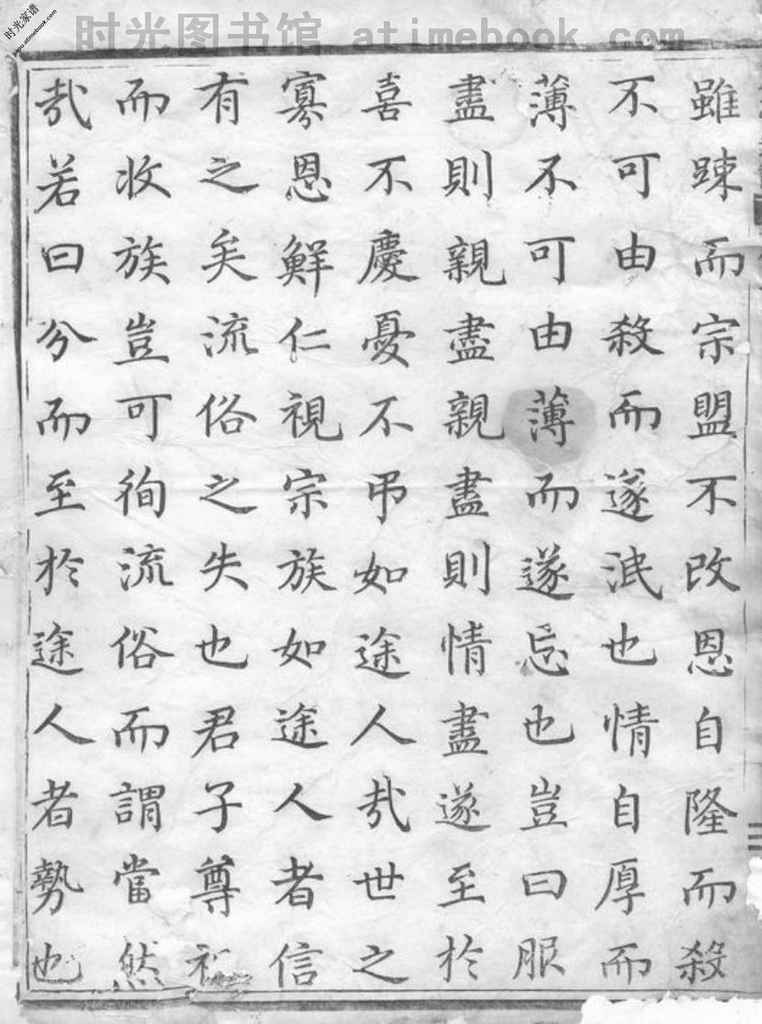 时光图书馆 atimebook.com
时光家谱
www.atimebook.com
雖踈而宗盟不改恩自隆而殺
不可由殺而遂泯也情自厚而
薄不可由薄而遂忘也豈曰服
盡則親盡親盡則情盡遂至於
喜不慶憂不弔如途人哉世之
寡恩鮮仁視宗族如途人者信
有之矣流俗之失也君子尊
而收族豈可徇流俗而謂當然
哉若曰兮而至於途人者勢也